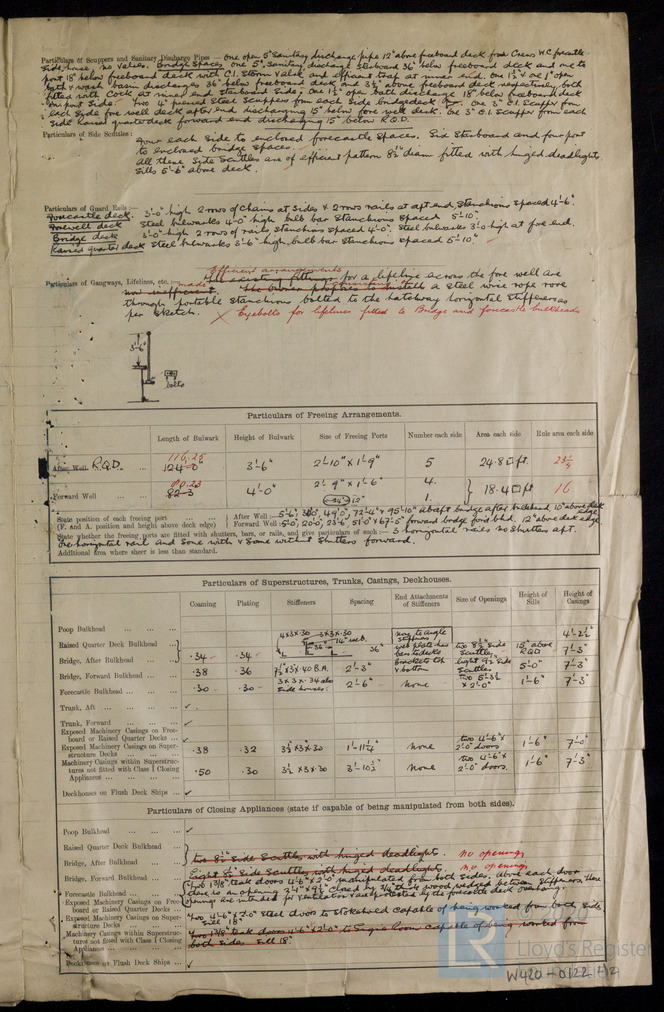 Particulars of Scuppers and Sanitary Discharge Pipes :— One open 5" sanitary discharge pipe 12" above freeboard deck from Crews W.C. forecastle
side house, no valves. Bridge Spaces one 5" sanitary discharge starboard 36" below freeboard deck and one to
port 18" below freeboard deck with C.I. Storm Valve and efficient trap at inner end. one 1½" & one 1" open
bath & wash basin discharges 36" below freeboard deck and 3½" above freeboard deck respectively both
fitted with Cock at inner end starboard side; One 1½" open bath discharge 18" below freeboard deck
on port side. Two 4" pierced steel scuppers from each side bridge deck One 3" C.I. scupper from
each side fore well deck after end discharging 15" below fore well deck. One 3" C.I. scupper from each
side raised quarter deck forward end discharging 15" below R.Q.D.
Particulars of Side Scuttles :
Four each side to enclosed forecastle spaces. Six starboard and four port
to enclosed bridge spaces.
All these side scuttles are of efficient pattern 8½" diam fitted with hinged deadlights
Sills 5'-6" above deck.
Particulars of Guard Rails :—
Forecastle deck. 3'-0" high 2 rows of chains at sides & 2 rows rails at aft end, stanchions spaced 4'-6".
Forewell deck Steel bulwarks 4'-0" high bulb bar stanchions spaced 5'-10".
Bridge deck 3'-0" high 2 rows of rails stanchions spaced 4'-0". Steel bulwarks 3'-0 high at fore end.
Raised quarter deck Steel bulwarks 3'-6" high bulb bar stanchions spaced 5'-10"
Efficient arrangements
Particulars of Gangways, Lifelines, etc. :— made The existing fittings for a lifeline across the fore well are
now inefficient. The owner proposes to install a steel wire rope rove
through portable stanchions bolted to the hatchway horizontal stiffeners as
per sketch. X Eyebolts for lifelines fitted to Bridge and forecastle bulkheads
3'-6"
bolts
Particulars of Freeing Arrangements.
Length of Bulwark Height of Bulwark Size of Freeing Ports Number each side Area each side Rule area each side
116.25
After Well R.Q.D. ... 124'-0" 3'-6" 2'-10" x 1'-9" 5 24.8 □ ft. 23¼
80.23
Forward Well ... ... 82'-3 4'-0" 2'-9" x 1'-6" 4. 18.4 □ ft 16
1.
State position of each freeing port ... ... After Well :— 5'-6", 49'0", 72'-4" & 95'-10" abaft bridge after bulkhead 10" above deck
(F. and A. position and height above deck edge) Forward Well :— 5'0", 20'0", 23'-6", 51'0" & 67'-5" forward bridge ford bhd. 12" above deck edge
State whether the freeing ports are fitted with shutters, bars, or rails, and give particulars of each :— 3 horizontal rails no shutters aft.
One horizontal rail and some with & some without shutters forward.
Additional area where sheer is less than standard.
Particulars of Superstructures, Trunks, Casings, Deckhouses.
Coaming Plating Stiffeners Spacing End Attachments of Stiffeners Size of Openings Height of Sills Height of Casings
Poop Bulkhead ... ... ... 4'-2½"
Raised Quarter Deck Bulkhead ...
Bridge, After Bulkhead ... ... .34 .34 4x3x.30 3x3x.30 14" web. 36 36" two 8½" side scuttles, 15" above RQD 7'-3"
Bridge, Forward Bulkhead ... ... .38 .36 7½"x3"x.40 B.A. 2'-3" brackets top & bottom eight 9½" side scuttles 5'-0" 7'-3"
Forecastle Bulkhead ... ... .30 .30 3x3x.34 also side houses. 2'-6" None Two 5'3½ x 2'0" 1'-6" 7'-3"
Trunk, Aft ... ... ... ✓
Trunk, Forward ... ... ... ✓
Exposed Machinery Casings on Freeboard or Raised Quarter Decks ... ✓
Exposed Machinery Casings on Superstructure Decks ... ... .38 .32 3½x3x.30 1'-11¼" None two 4'-6" x 2'-0" doors 1'-6" 7'-0"
Machinery Casings within Superstructures not fitted with Class I Closing Appliances ... ... .50 .30 3½ x3x.30 3'-10½" None two 4'-6" x 2'-0" doors. 1'-6" 7'-3"
Deckhouses on Flush Deck Ships ... ✓
Particulars of Closing Appliances (state if capable of being manipulated from both sides).
Poop Bulkhead ... ... ... ✓
Raised Quarter Deck Bulkhead ...
Bridge, After Bulkhead ... ... two 8½" side scuttles with hinged deadlights. no openings
Bridge, Forward Bulkhead ... ... Eight 8½" side scuttles with hinged deadlights. no openings
Forecastle Bulkhead ... ... Two 1 3/8" teak doors 4'-6" x 2'-0" manipulated from both sides. Above each door
there is an opening 2'-4" x 9½" closed by 3/4" thick wood wedged between stiffeners. These
Exposed Machinery Casings on Freeboard or Raised Quarter Decks ... openings are intended for ventilation & are protected by the forecastle deck overhang.
Exposed Machinery Casings on Superstructure Decks ... ... Two 4'-6" x 2'.0" steel doors to stokehold capable of being worked from both sides
Sill 18"
Machinery Casings within Superstructures not fitted with Class I Closing Appliances ... Two 1 3/8" teak doors 4'-6" x 2'-0" to Engine Room capable of being worked from
both sides Sill 18"
Deckhouses on Flush Deck Ships ... ✓
LR
© 2020
Lloyd's Register
W420-0122 1/2